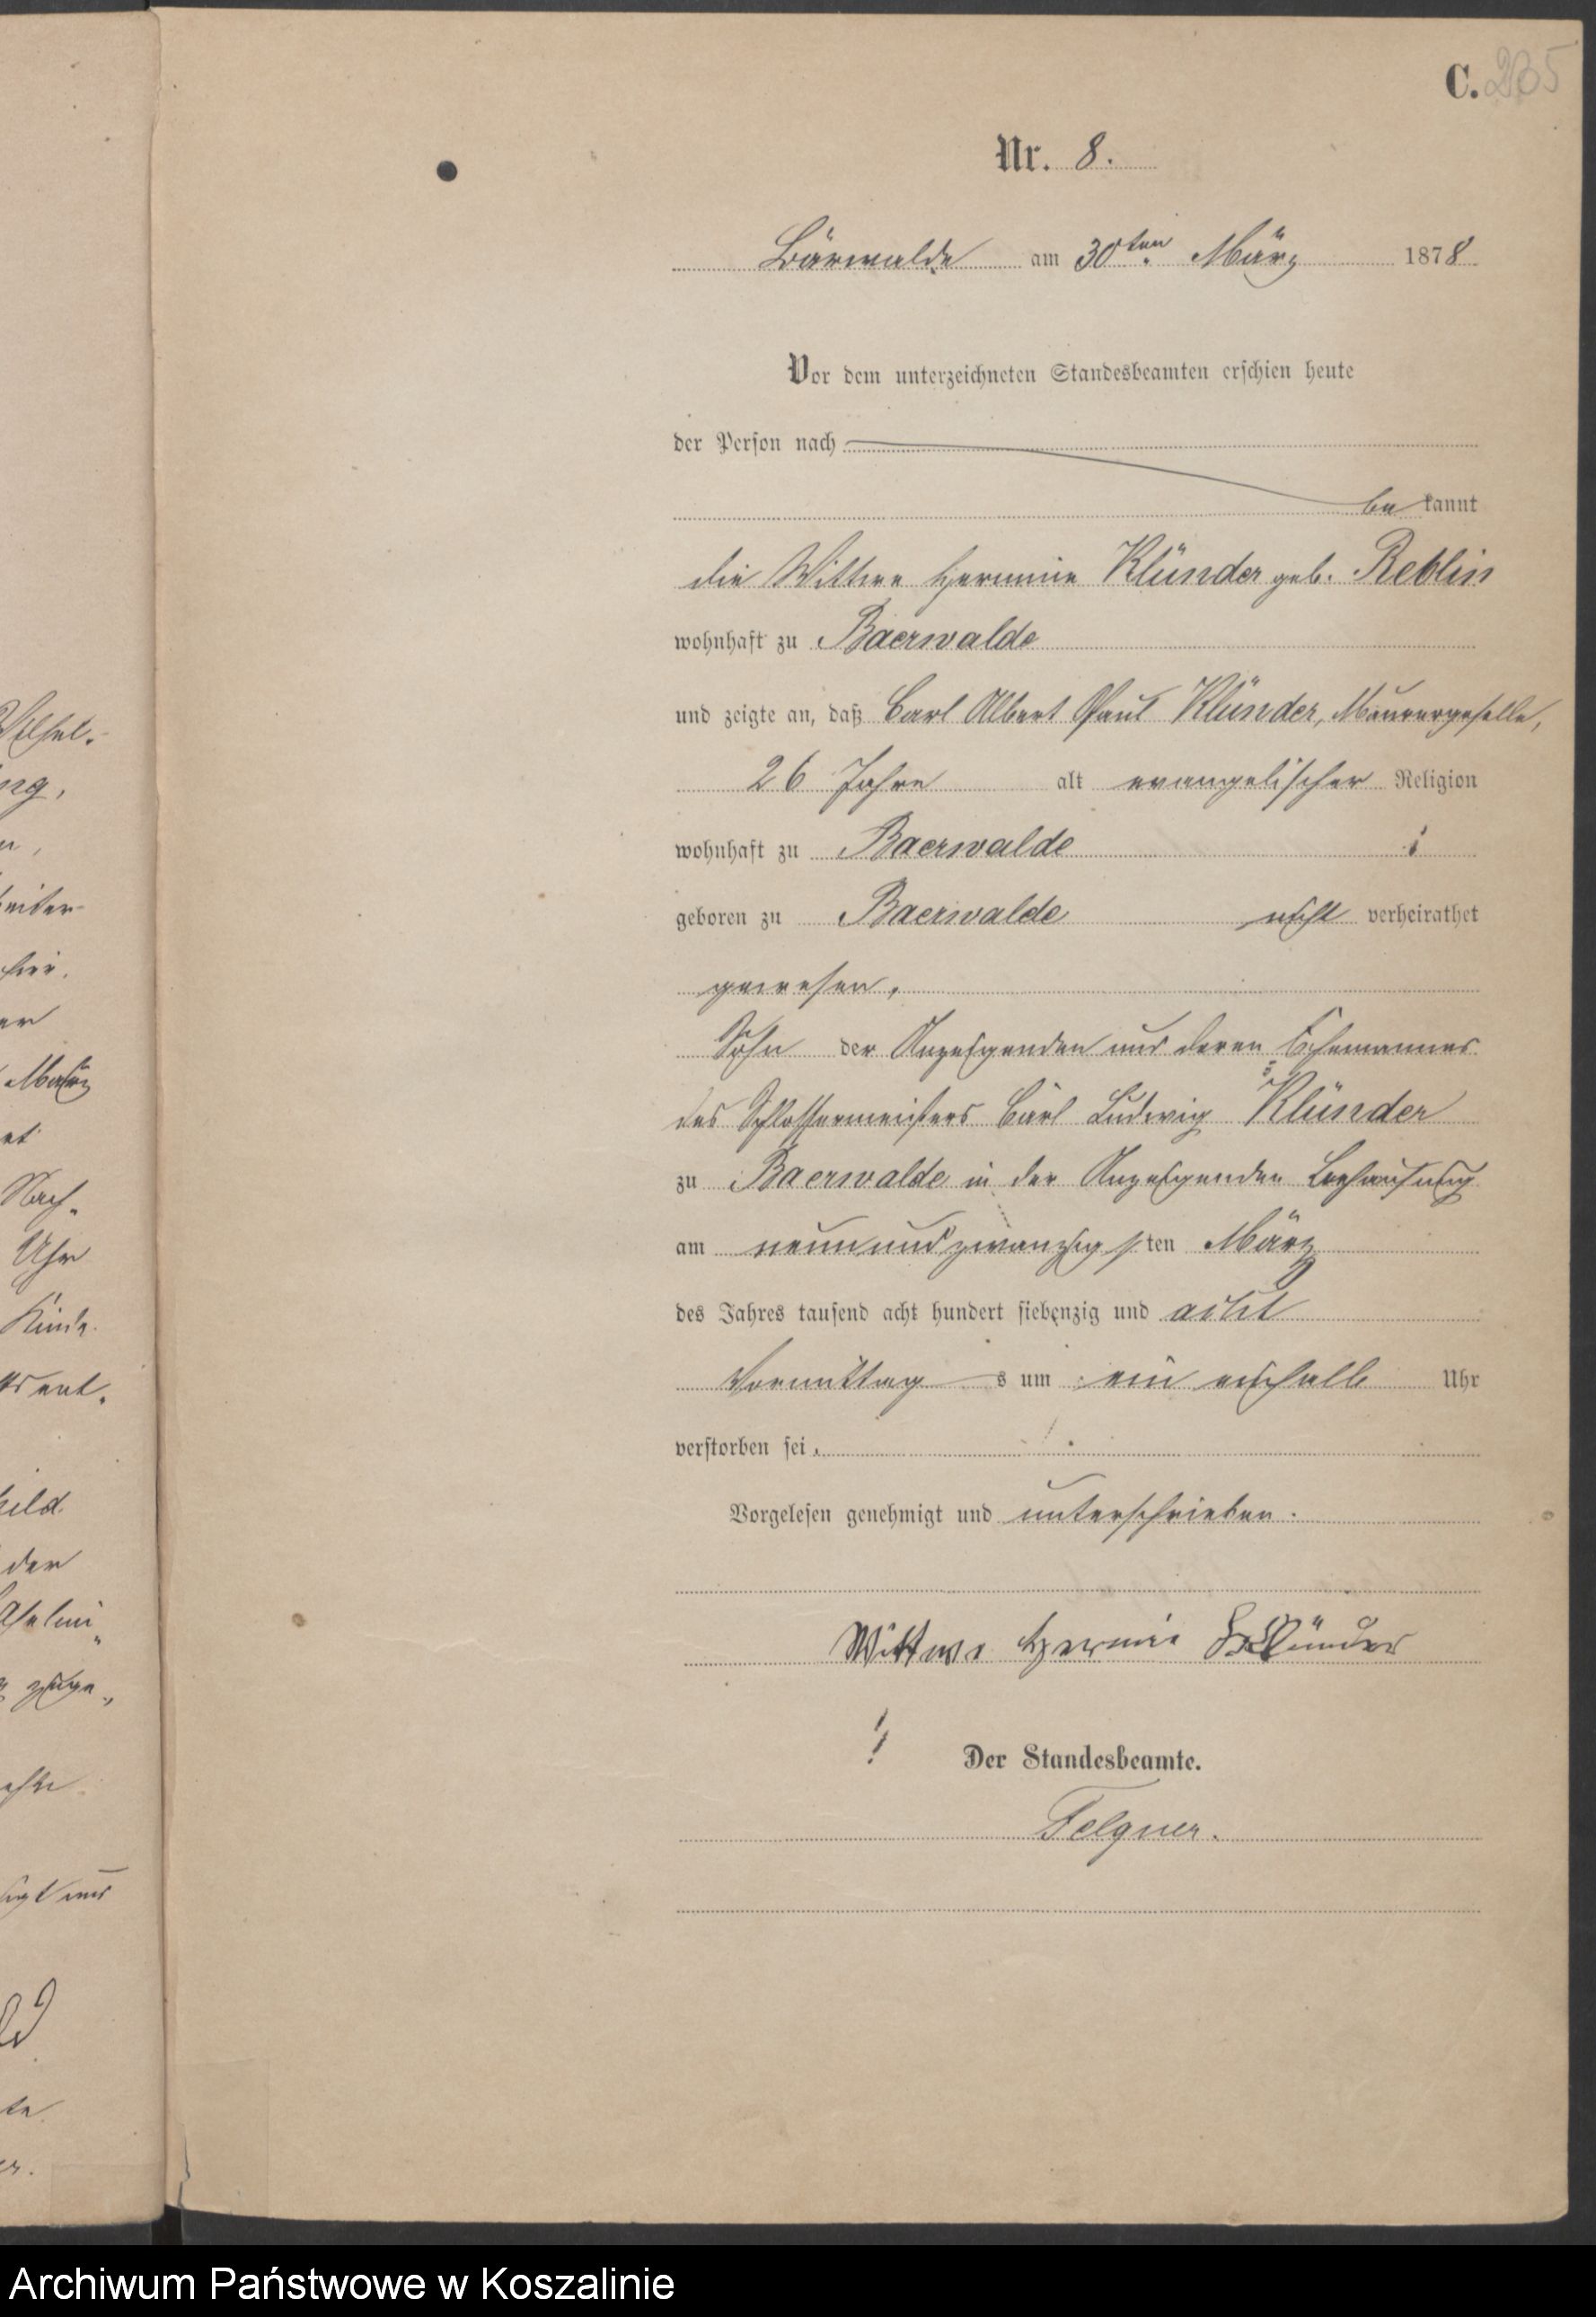 C. 235
Nr. 8.
Bärwalde am 30ten März 1878
Vor dem unterzeichneten Standesbeamten erschien heute
der Person nach
be kannt
die Wittwe Hermine Klünder geb. Reblin
wohnhaft zu Baerwalde
und zeigte an, daß Carl Albert Paul Klünder, Maurergeselle,
26 Jahre alt evangelischer Religion
wohnhaft zu Baerwalde
geboren zu Baerwalde nicht verheirathet
gewesen,
Sohn der Anzeigenden und deren Ehemannes
des Schlossermeisters Carl Ludwig Klünder
zu Baerwalde in der Anzeigenden Behausung
am neunundzwanzigsten März
des Jahres tausend acht hundert siebenzig und acht
Vormittags um ein einhalb Uhr
verstorben sei.
Vorgelesen genehmigt und unterschrieben.
Wittwe Hermie Klünder
Der Standesbeamte.
Felgner.
ng,
Uhr
der
Archiwum Państwowe w Koszalinie